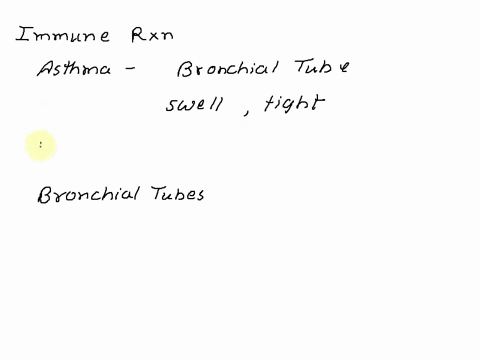 Immune Rxn
Asthma - Bronchial Tube
swell, tight
Bronchial Tubes